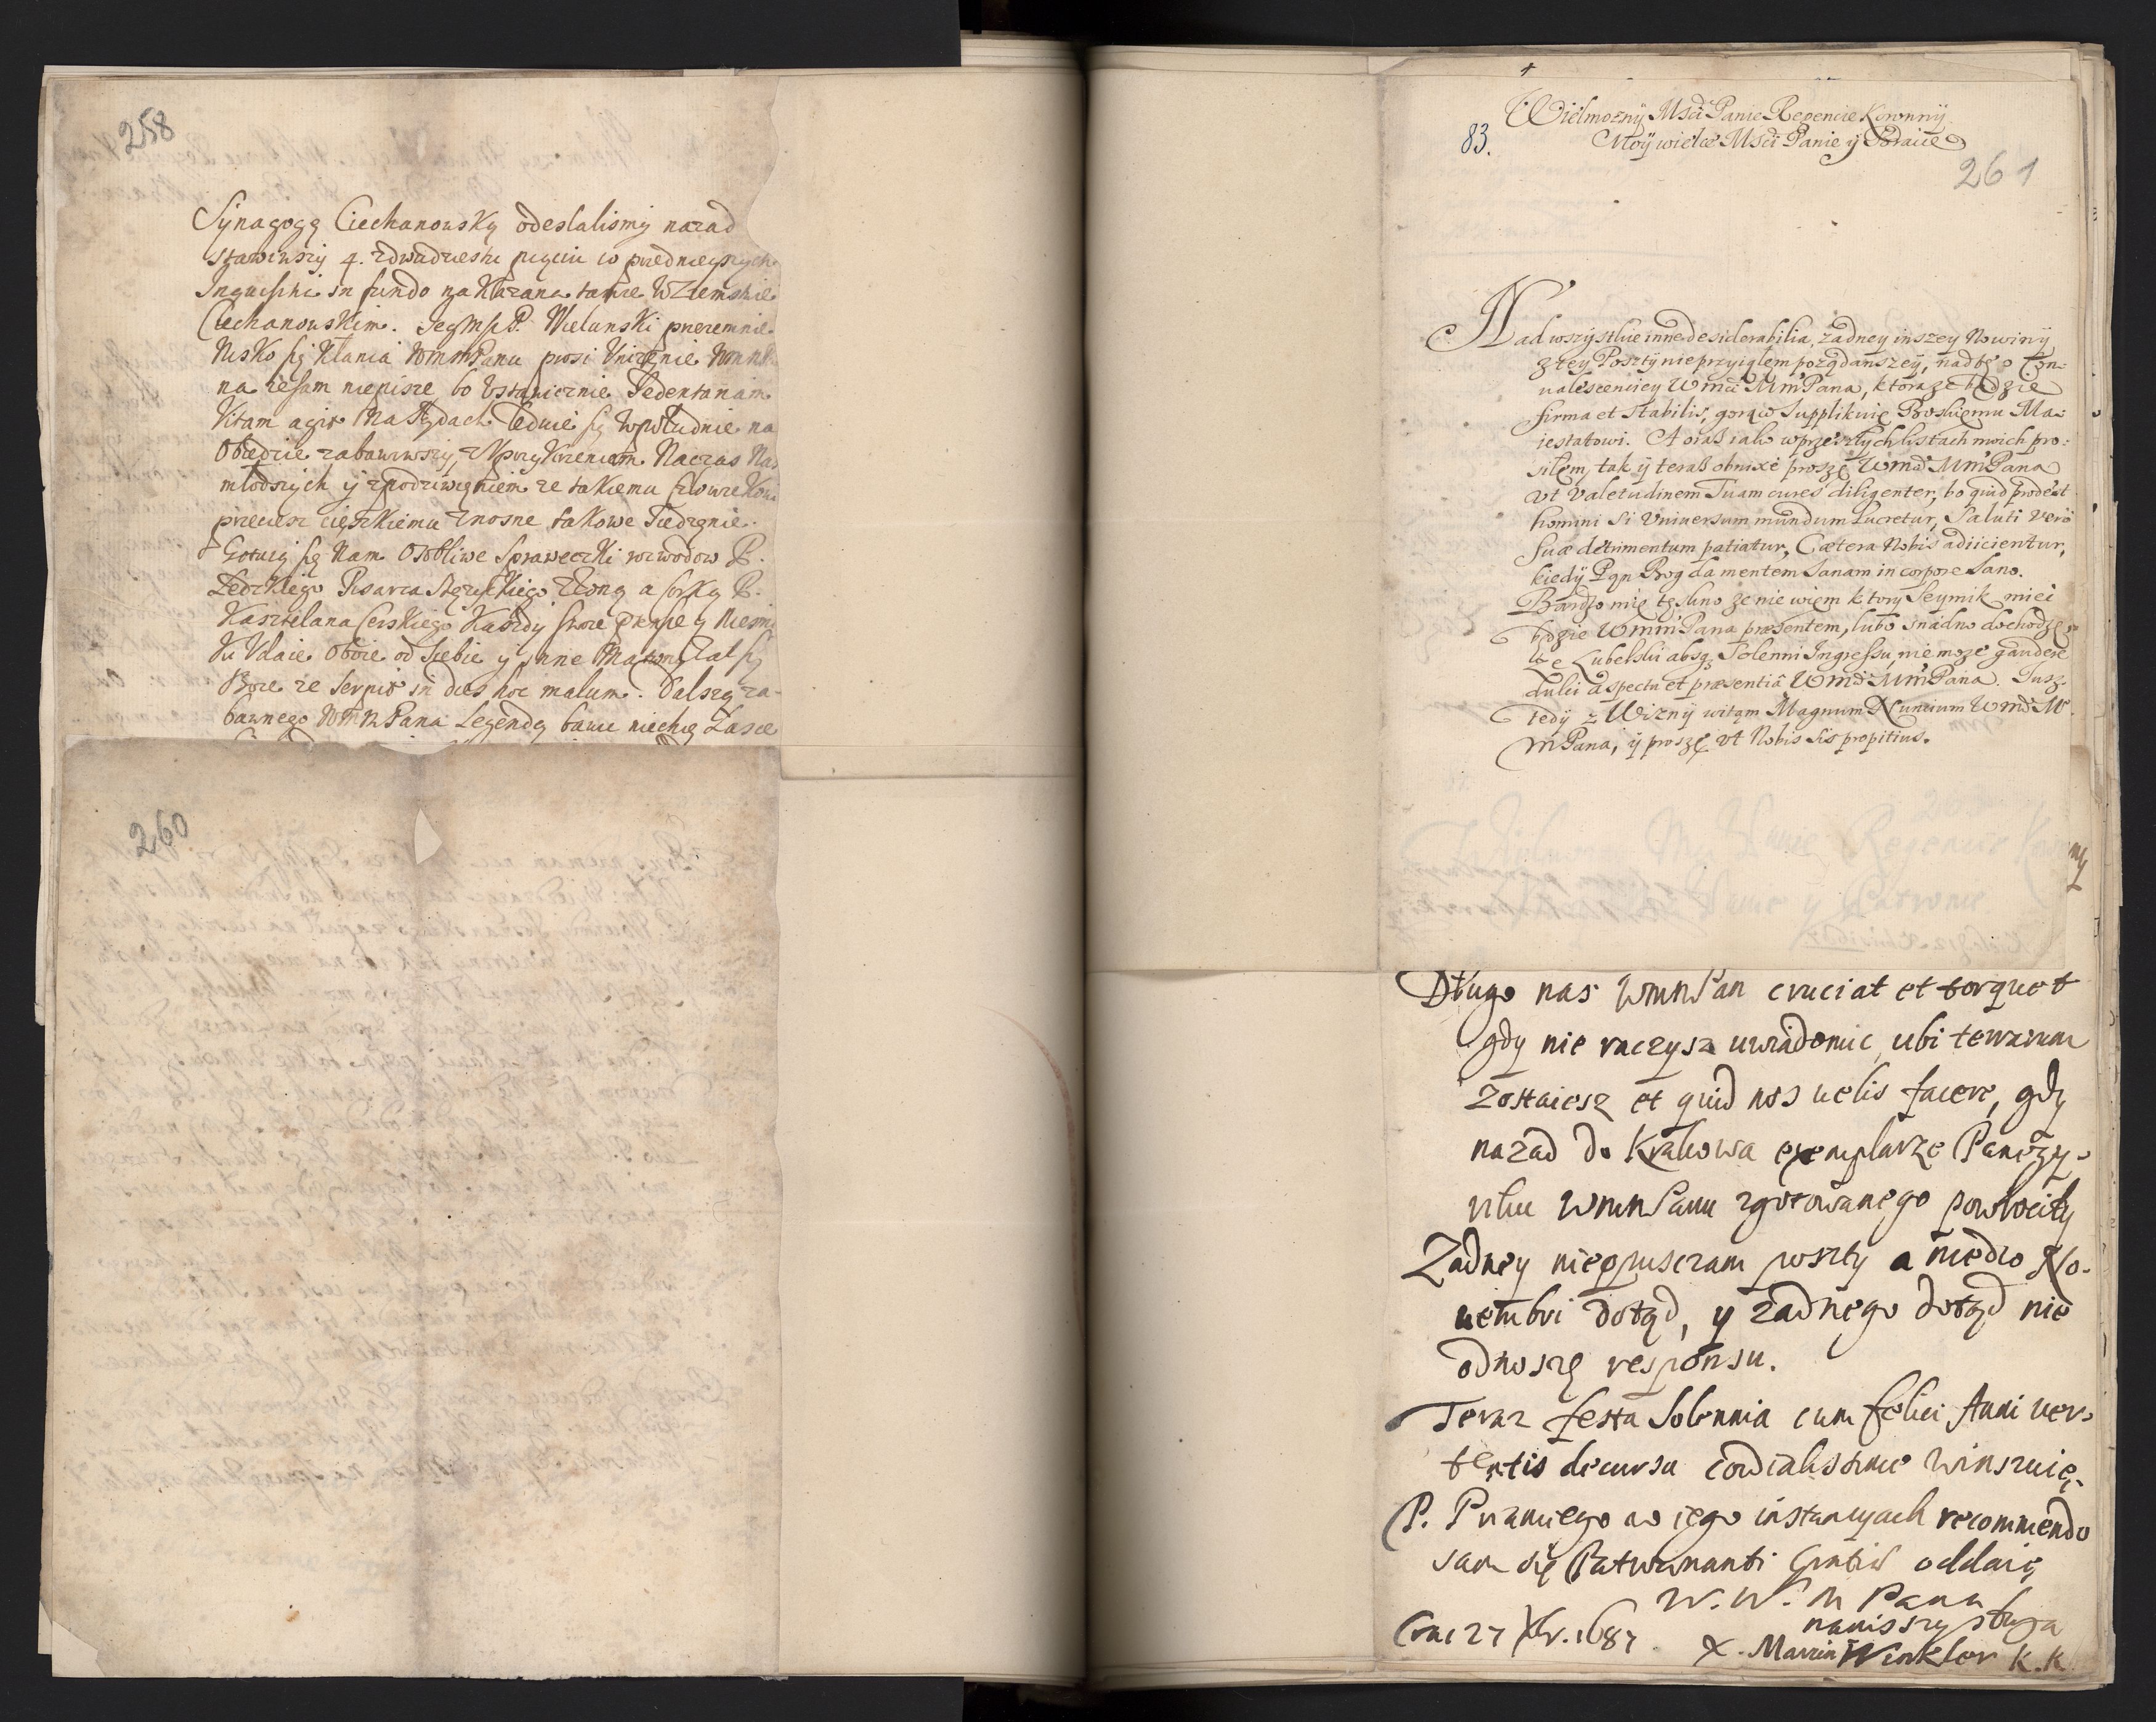 258
Synagogę Ciechanowską odesłalismy nazad
stawiwszy 4. zdwadziestu pięciu co przednieyszych
Inquisitie in fundo nakazane tamze w Ziemstwie
Ciechanowskim. Jegmsc P. Wielunski przezemnie
nisko się kłania WmmPanu prosi Unizenie
na ze sam niepisze bo Ustawicznie Sedentariam
Vitam agit na Sądach Tedniei się w południe na
Obiedzie zabawiwszy, z Uprzykrzeniem Naczas Nas
młodszych y z podziwięniem ze takiemu człowiekowi
przeciesz cięszkiemu znosne takowe Siedzęnie.
Gotuią się Nam Osobliwe Spraweczki rozwodow P.
Pisarza zzoną a corką P.
Kasztelana Cerskiego Kazdy swoie y
Udaie Oboie od siebie y inne
Boze ze serpit in dies hoc malum. Dalszą za-
bawnego WmmPana Legendą bawić niechcę Łasce
260
83.
Wielmozny Msci Panie Regencie Koronny
Moy wielce Msci Panie y Bracie
261
Nad wszystkie inne desiderabilia, zadney inszey Nowiny
z tey Poszty nieprzyiąłem poządanszey, nad tę o Con-
ualescenciey Wmci MmPana, ktora ze będzie
firma et stabilis, gorąco Supplikuię Boskiemu Ma-
iestatowi. A oiasz iako w przeszłych listach moich pro-
siłem, tak y terasz obnixe proszę Wmci MmPana
vt valetudinem Tuam cures diligenter, bo quid prodest
homini si Vniuersum mundum Lucretur, Saluti vero
suæ detrimentum patiatur, Cætera Nobis adiicientur,
kiedy Pan Bog da mentem Sanam in corpore Sano.
Bardzo mię tęskno ze nie wiem ktory Seymik miec
będzie WmmPana præsentem, lubo snadno dochodzę,
ze Lubelski absq; Solenni Ingressu, nie moze gaudere
dulci aspectu et præsentiâ Wmci MmPana. Tusz
tedy z Wizny witąm Magnum Nuncium Wmci M
mPana, y proszę vt Nobis sis propitius.
Długo nas WmmPan cruciat et torquet
gdy nie raczysz uwiadomic, ubi terrarum
zostaiesz et quid nos uelis facere, gdy
nazad do Krakowa exemplarze Panegy-
riku WmmPanu zgotowanego powrociły
Zadney nieopuszczam poszty a medio No-
uembri dotąd, y zadnego dotąd nie
odnoszę responsu.
Teraz festa Solennia cum felici Anni ver-
tentis decursu cordialissime winszuię,
P. w iego instancyach recommendo
sam się Patrocinanti Gratiæ oddaię
W. W. M Pana
naniszszy sługa
Crac 27 Xbr. 1687. X. Marcin Winkler K.K.